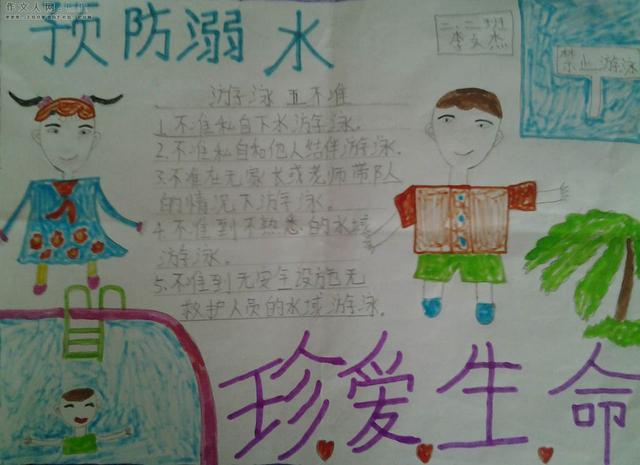 作文人网
预防溺水
二.二班
李文杰
禁止游泳
游泳五不准
1.不准私自下水游泳.
2.不准私自和他人结伴游泳.
3.不准在无家长或老师带队
的情况下游泳.
4.不准到不熟悉的水域
游泳.
5.不准到无安全设施无
救护人员的水域游泳.
珍爱生命